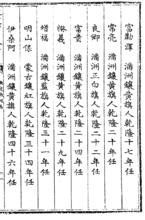 富勒渾 滿洲鑲黃旗人乾隆十七年任
常亮 滿洲鑲黃旗人乾隆二十年任
良卿 滿洲正白旗人乾隆二十二年任
富貴 滿洲鑲黃旗人乾隆二十四年任
滿洲鑲黃旗人乾隆二十九年任
增福 滿洲鑲藍旗人乾隆三十一年任
明山保 蒙古鑲紅旗人乾隆三十四年任
伊桑阿 滿洲鑲黃旗人乾隆四十六年任